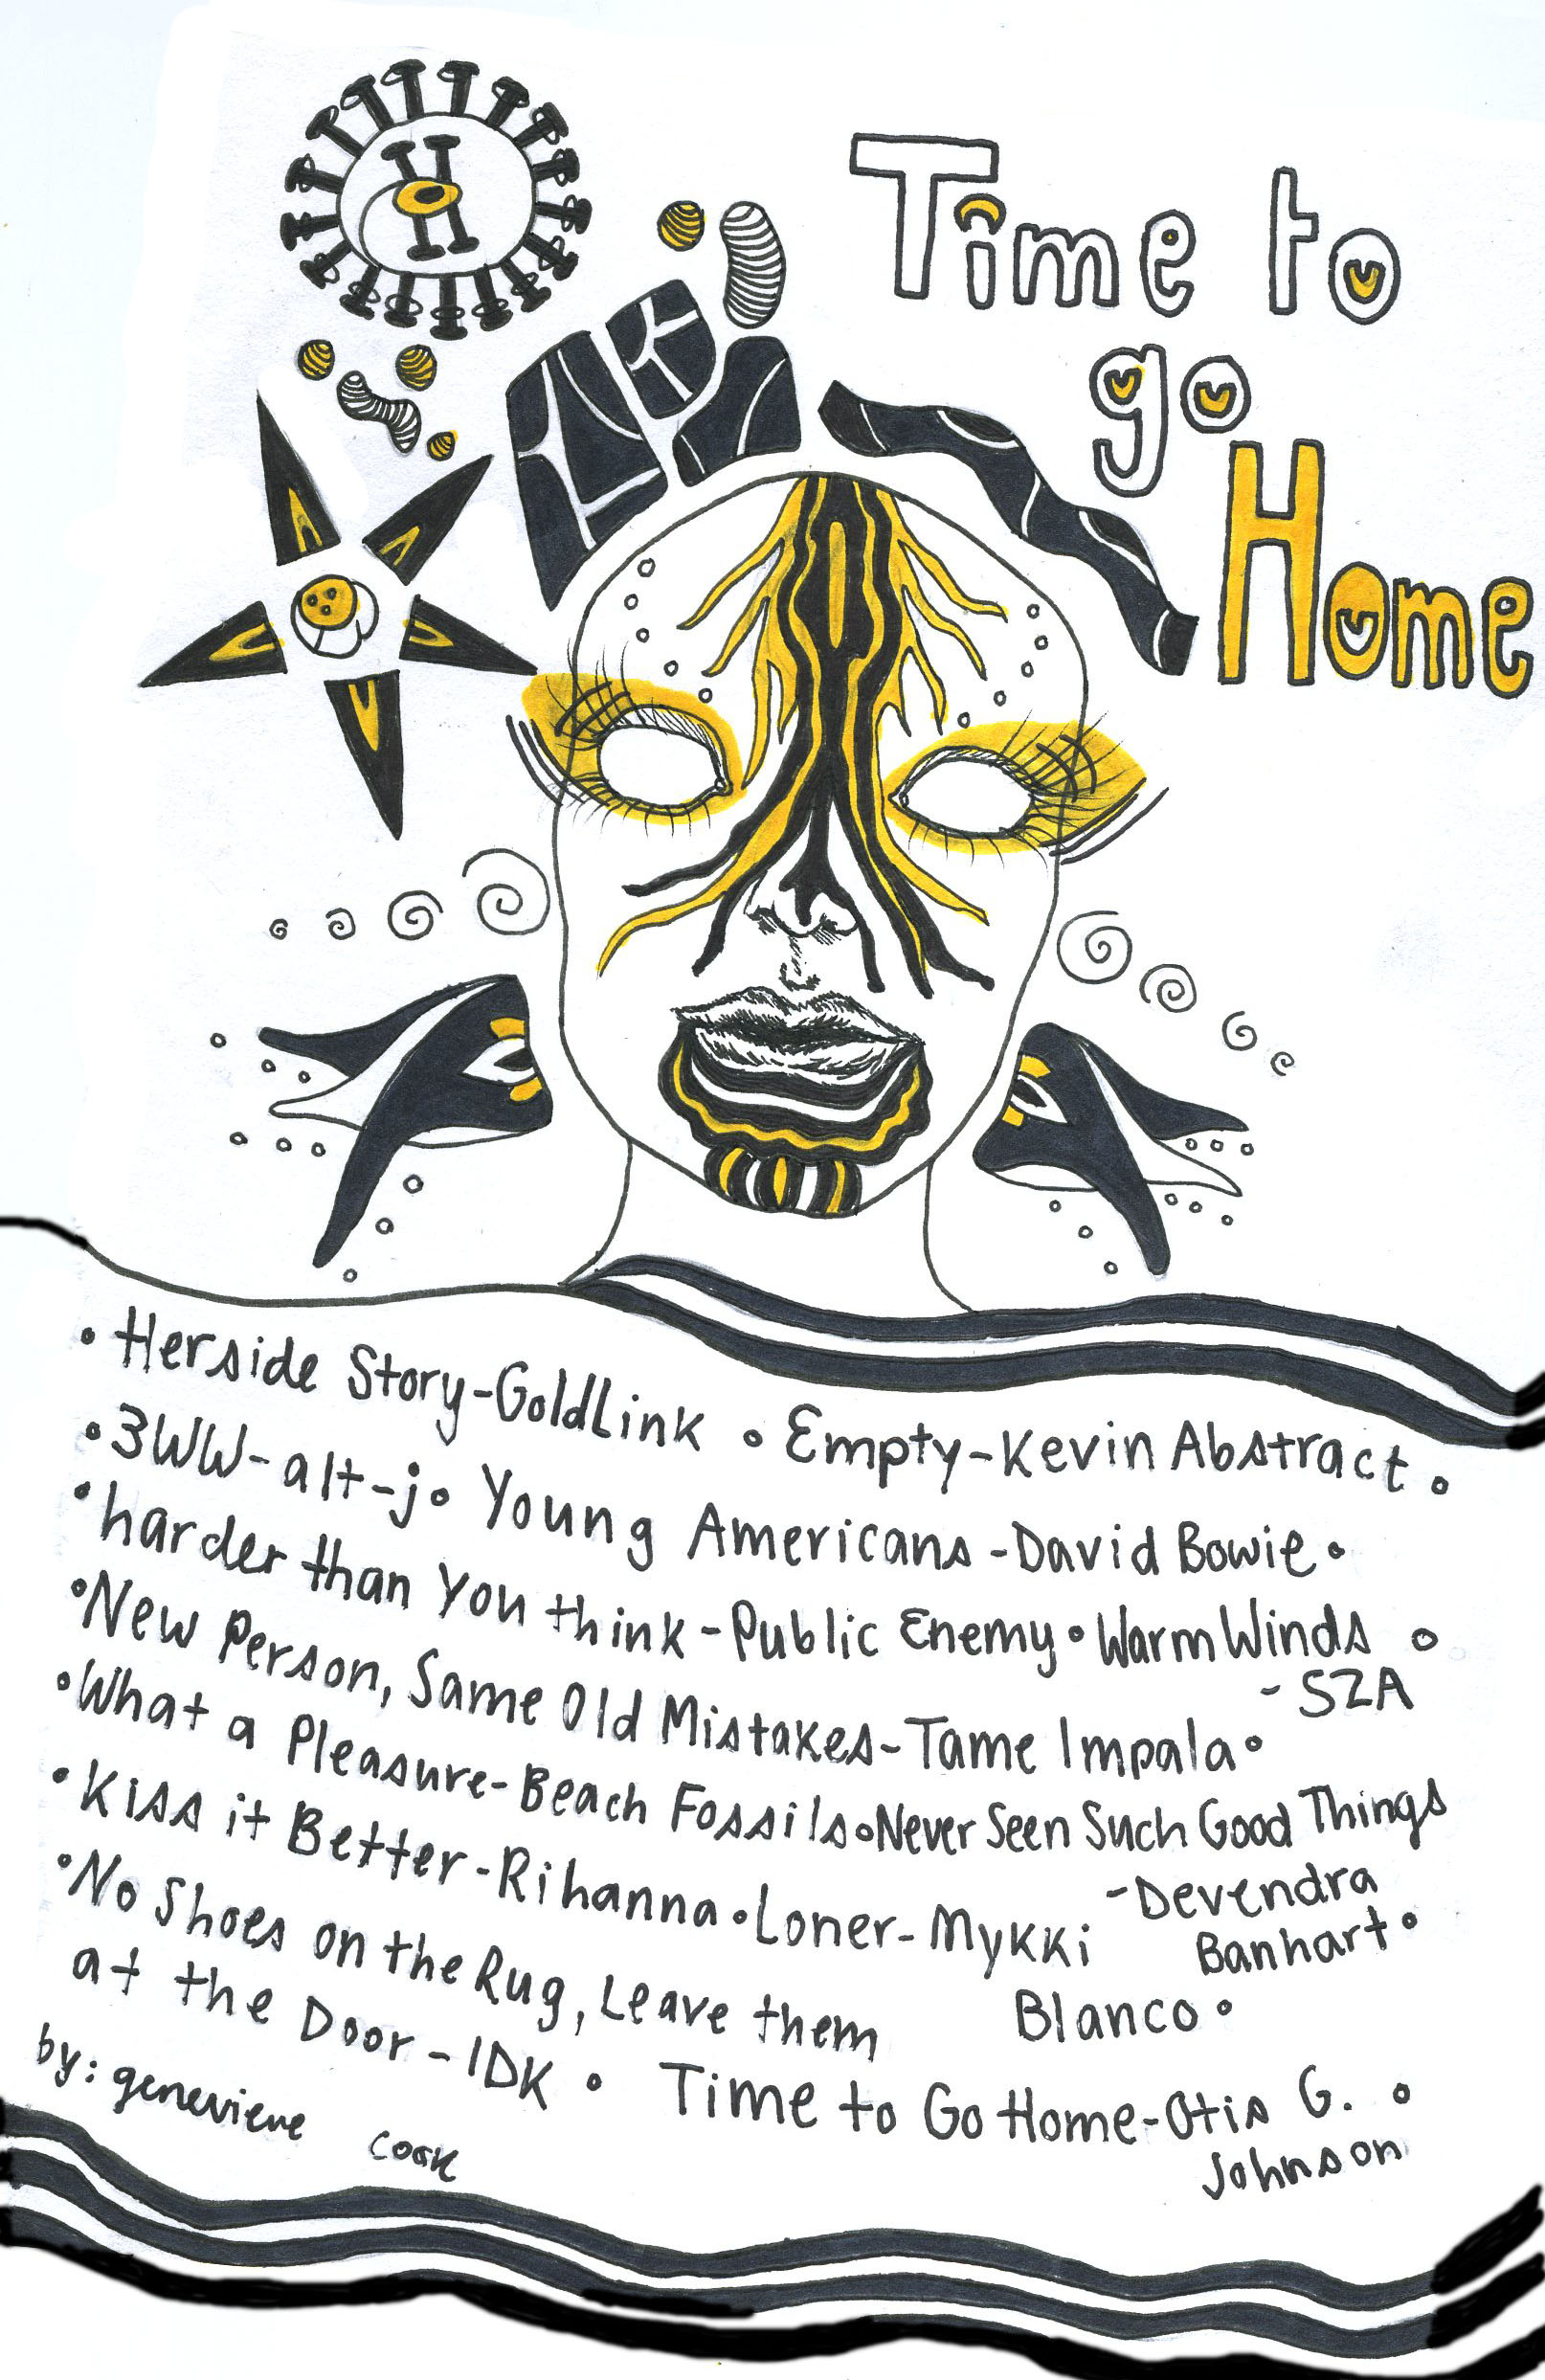 Time to
go
Home
• Herside Story-GoldLink • Empty-Kevin Abstract •
• 3WW-alt-j • Young Americans-David Bowie •
• harder than You think-Public Enemy • Warm Winds •
-SZA
• New Person, Same Old Mistakes-Tame Impala •
• What a Pleasure-Beach Fossils • Never Seen Such Good Things
-Devendra
Banhart •
• Kiss it Better-Rihanna • Loner-Mykki
Blanco •
• No Shoes on the Rug, Leave them
at the Door-IDK • Time to Go Home-Otis G. •
Johnson
by: genevieve cook